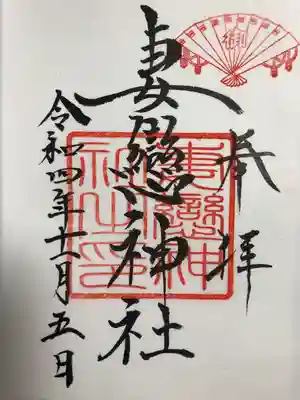 奉拝
妻戀神社
令和四年十一月五日
妻戀神社之印